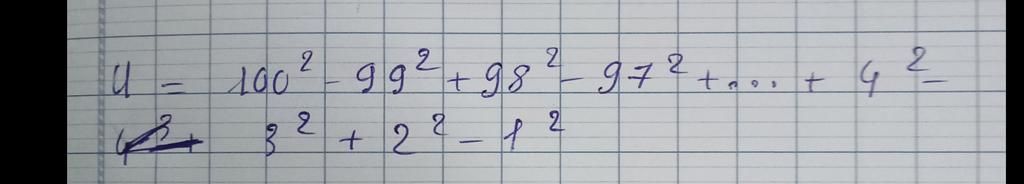 U = 100² - 99² + 98² - 97² + .... + 4² -
3² + 2² - 1²